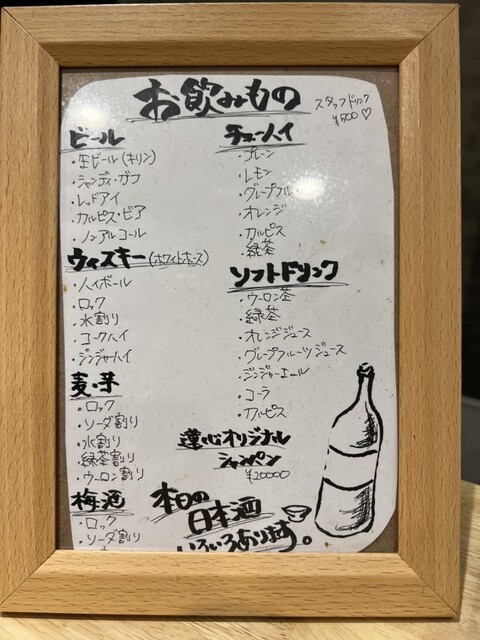 お飲みもの
スタッフドリンク
¥500♡
ビール
・生ビール(キリン)
・シャンディ・ガフ
・レッドアイ
・カルピス・ビア
・ノンアルコール
ウィスキー(ホワイトホース)
・ハイボール
・ロック
・水割り
・コークハイ
・ジンジャーハイ
麦・芋
・ロック
・ソーダ割り
・水割り
・緑茶割り
・ウーロン割り
梅酒
・ロック
・ソーダ割り
チューハイ
・プレーン
・レモン
・グレープフル
・オレンジ
・カルピス
・緑茶
ソフトドリンク
・ウーロン茶
・緑茶
・オレンジジュース
・グレープフルーツジュース
・ジンジャーエール
・コーラ
・カルピス
蓮心オリジナル
シャンパン
¥20000
本日の
日本酒
いろいろあります。